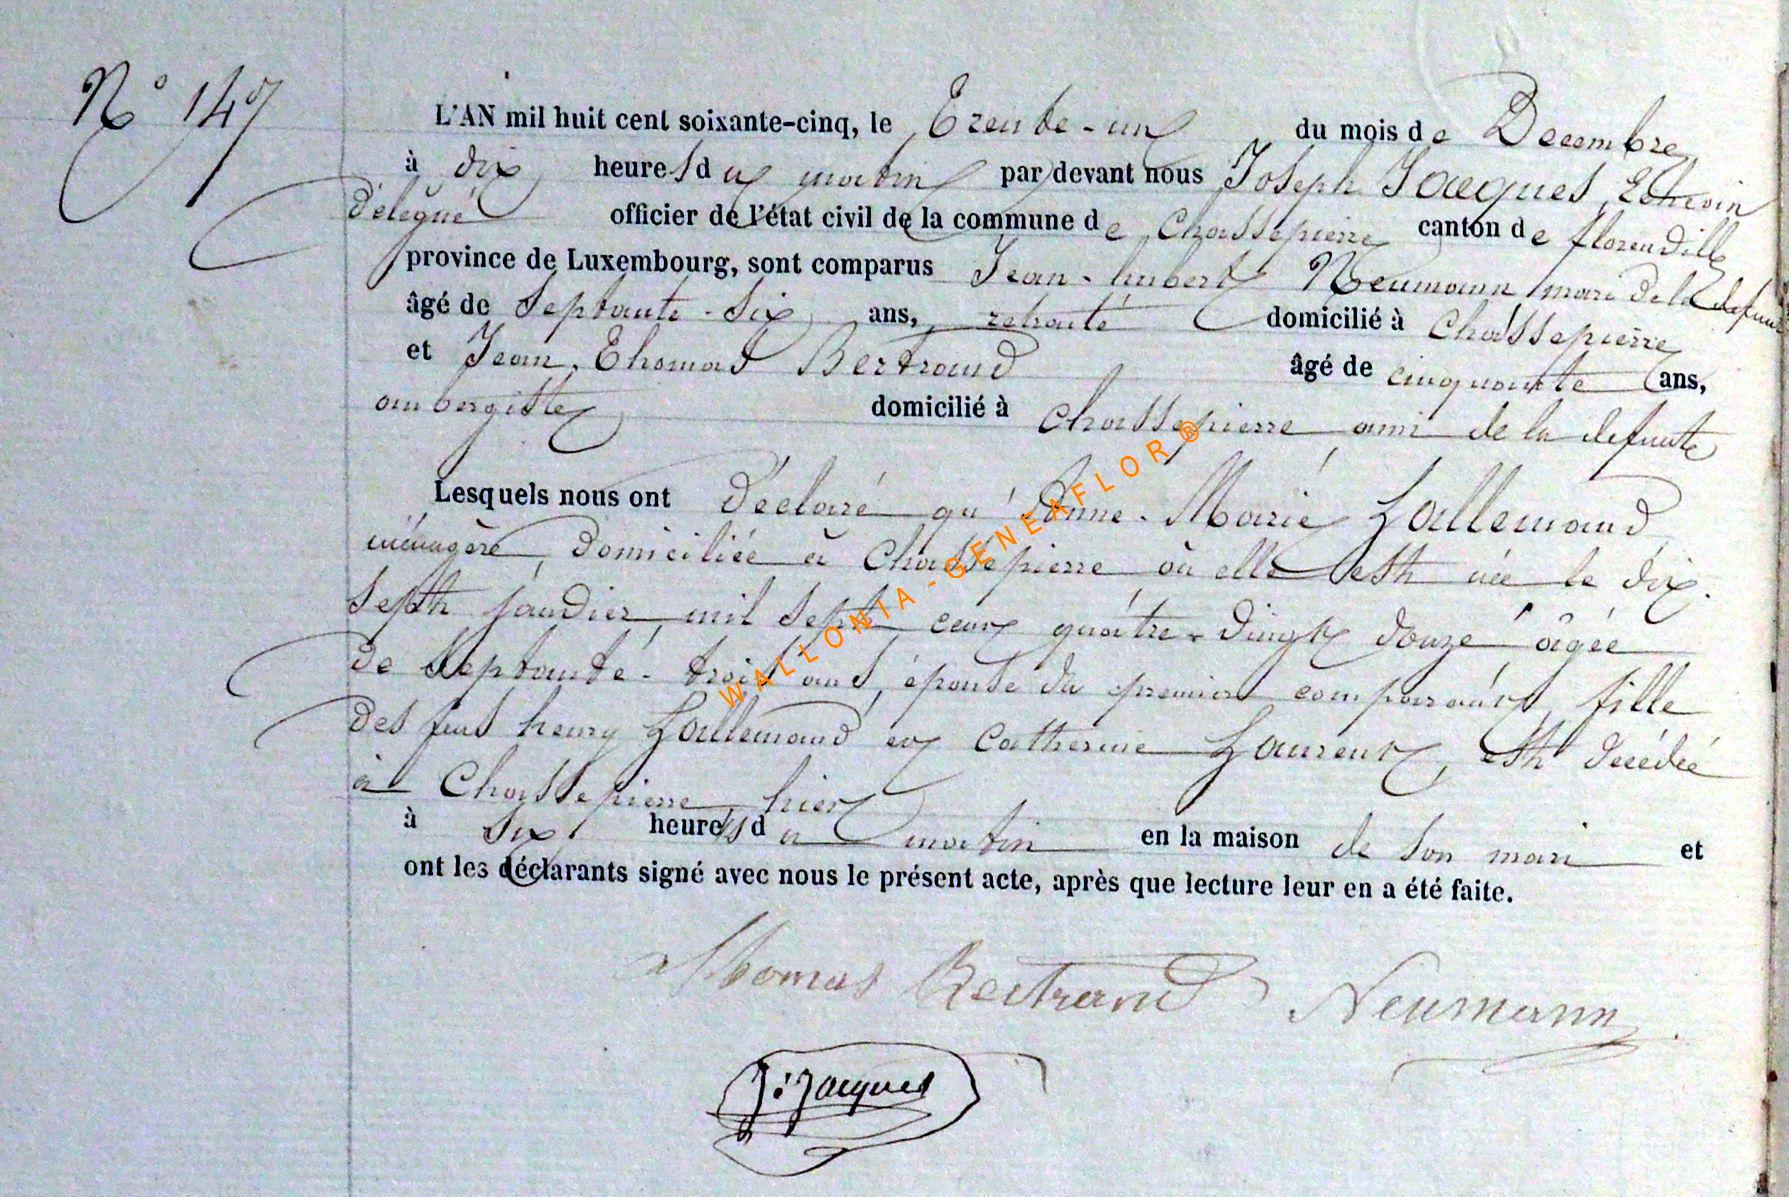 N° 147
L'AN mil huit cent soixante-cinq, le Trente-un du mois de Decembre
à dix heures du matin par devant nous Joseph Jacques, Echevin
délégué officier de l'état civil de la commune de Chassepierre canton de florenville
province de Luxembourg, sont comparus Jean-hubert Neumann mari de la defunte
âgé de Septante-six ans, retraité domicilié à Chassepierre
et Jean, Thomas Bertrand âgé de cinquante ans,
aubergiste domicilié à Chassepierre ami de la defunte
Lesquels nous ont déclaré qu'Anne-Marie Lallemand
ménagère, domiciliée à Chassepierre, où elle est née le dix-
sept janvier, mil sept cent quatre-vingt douze âgée
de Septante-trois ans, épouse du premier comparant, fille
des feus henry Lallemand et Catherine Laurent, est décédée
à Chassepierre, hier
à six heures du matin en la maison de son mari et
ont les déclarants signé avec nous le présent acte, après que lecture leur en a été faite.
Thomas Bertrand Neumann
J: Jacques
WALLONIA-GENEAFLOR®